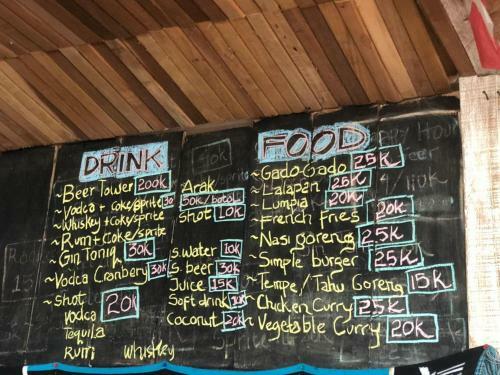 DRINK
~Beer Tower 200k
~Vodca + Coke/sprite 30
~Whiskey + Coke/sprite
~Rum + Coke/Sprite
~Gin Tonic 30k
~Vodca Cranbery 30k
~Shot 20k
Vodca
Tequila
Rum Whiskey
Arak
50k/botol
Shot 10k
S.water 10k
S. beer 30k
Juice 15k
Soft drink 10k
Coconut 20k
FOOD
~Gado-Gado 25k
~Lalapan 25k
~Lumpia 20k
~French Fries 20k
~Nasi goreng 25k
~Simple burger 25k
~Tempe/Tahu Goreng 15k
~Chicken Curry 25k
~Vegetable Curry 20k